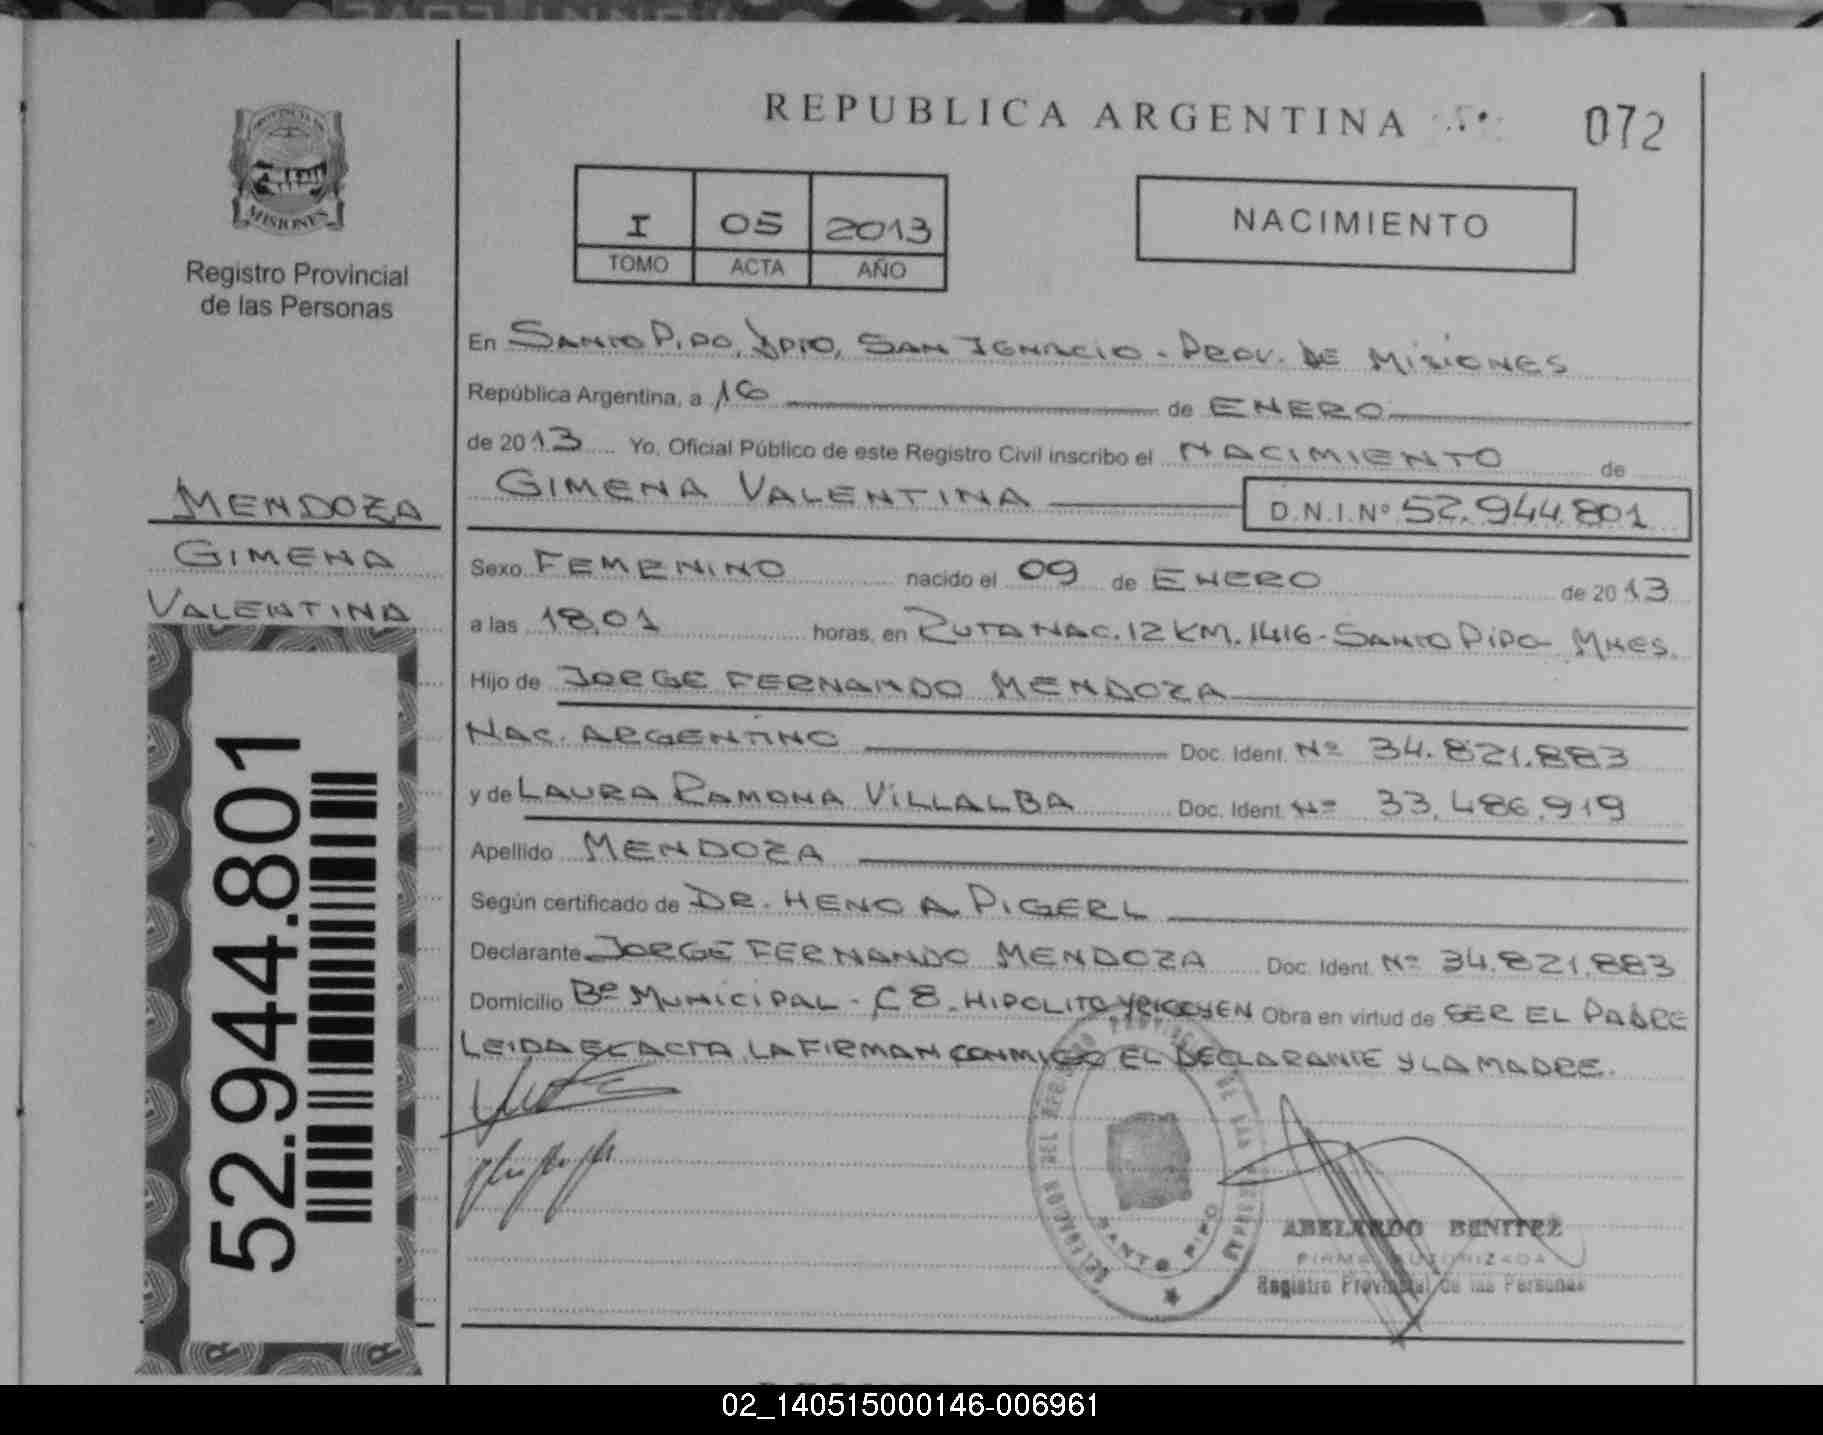 REPUBLICA ARGENTINA
072
PROVINCIA DE
MISIONES
Registro Provincial
de las Personas
I 05 2013
TOMO ACTA AÑO
NACIMIENTO
En SANTO PIPO, DPTO, SAN IGNACIO - PROV. DE MISIONES
República Argentina, a 16 de ENERO
de 2013 Yo, Oficial Público de este Registro Civil inscribo el NACIMIENTO de
GIMENA VALENTINA D.N.I.Nº 52.944.801
MENDOZA
GIMENA
VALENTINA
Sexo FEMENINO nacido el 09 de ENERO de 2013
a las 18,01 horas, en RUTA NAC. 12 KM. 1416 - SANTO PIPO - MNES.
Hijo de JORGE FERNANDO MENDOZA
NAC. ARGENTINO Doc. Ident. Nº 34.821.883
y de LAURA RAMONA VILLALBA Doc. Ident. Nº 33.486.919
Apellido MENDOZA
Según certificado de DR. HENO A. PIGERL
Declarante JORGE FERNANDO MENDOZA Doc. Ident. Nº 34.821.883
Domicilio Bº MUNICIPAL - C 8 - HIPOLITO YRIGOYEN Obra en virtud de SER EL PADRE
LEIDA EL ACTA, LA FIRMAN CONMIGO EL DECLARANTE Y LA MADRE.
52.944.801
SANTO PIPO
ABELARDO BENITEZ
FIRMA AUTORIZADA
Registro Provincial de las Personas
02_140515000146-006961